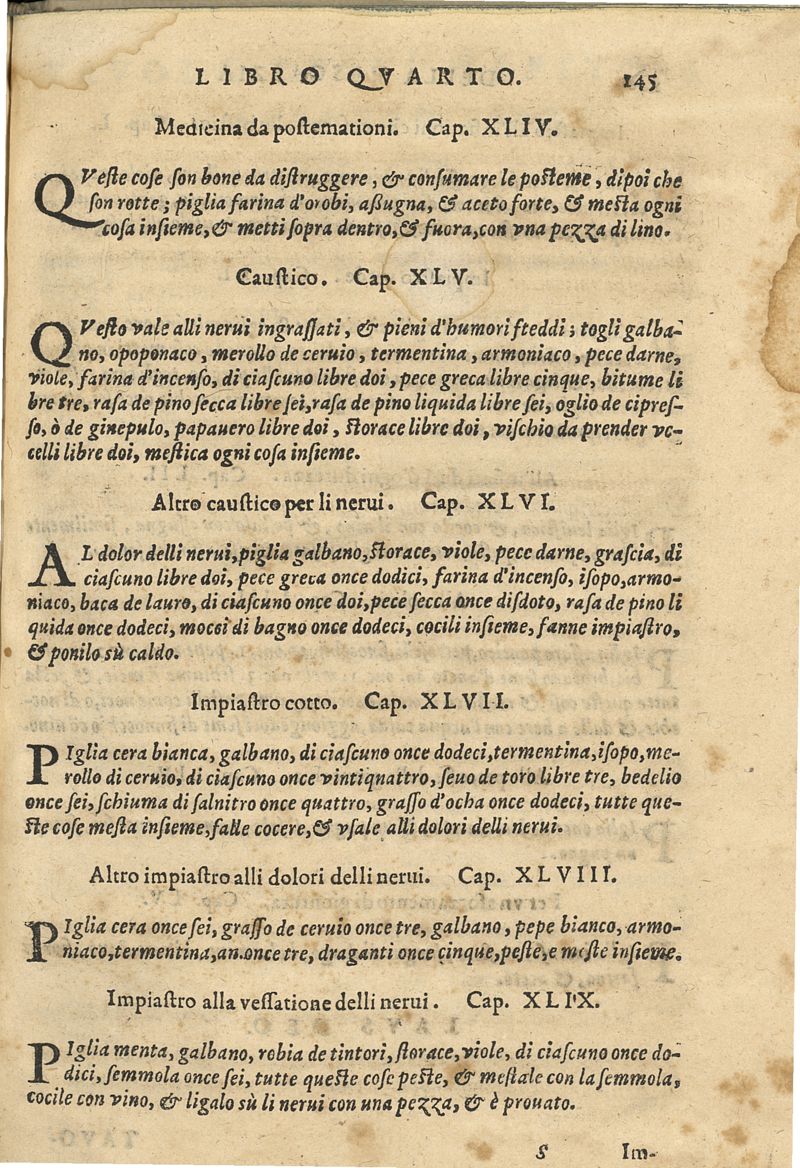 LIBRO QVARTO. 145
Medicina da postemationi. Cap. XLIV.
QVeste cose son bone da distruggere, & consumare le posteme, dipoi che
son rotte; piglia farina d'orobi, assugna, & aceto forte, & mesta ogni
cosa insieme, & metti sopra dentro, & fuora, con vna pezza di lino.
Caustico. Cap. XLV.
QVesto vale alli nerui ingrassati, & pieni d'humori fteddi; togli galba-
no, opoponaco, merollo de ceruio, termentina, armoniaco, pece darne,
viole, farina d'incenso, di ciascuno libre doi, pece greca libre cinque, bitume li
bre tre, rasa de pino secca libre sei, rasa de pino liquida libre sei, oglio de cipres-
so, ò de ginepulo, papauero libre doi, storace libre doi, vischio da prender vc-
celli libre doi, mestica ogni cosa insieme.
Altro caustico per li nerui. Cap. XLVI.
AL dolor delli nerui, piglia galbano, storace, viole, pece darne, grascia, di
ciascuno libre doi, pece greca once dodici, farina d'incenso, isopo, armo-
niaco, baca de lauro, di ciascuno once doi, pece secca once disdoto, rasa de pino li
quida once dodeci, mocci di bagno once dodeci, cocili insieme, fanne impiastro,
& ponilo sù caldo.
Impiastro cotto. Cap. XLVII.
PIglia cera bianca, galbano, di ciascuno once dodeci, termentina, isopo, me-
rollo di ceruio, di ciascuno once vintiquattro, seuo de toro libre tre, bedelio
once sei, schiuma di salnitro once quattro, grasso d'ocha once dodeci, tutte que-
ste cose mesta insieme, falle cocere, & vsale alli dolori delli nerui.
Altro impiastro alli dolori delli nerui. Cap. XLVIII.
PIglia cera once sei, grasso de ceruio once tre, galbano, pepe bianco, armo-
niaco, termentina, an. once tre, draganti once cinque, peste, e meste insieme.
Impiastro alla vessatione delli nerui. Cap. XLIX.
PIglia menta, galbano, robia de tintori, storace, viole, di ciascuno once do-
dici, semmola once sei, tutte queste cose peste, & mestale con la semmola,
cocile con vino, & ligalo sù li nerui con una pezza, & è prouato.
S Im-